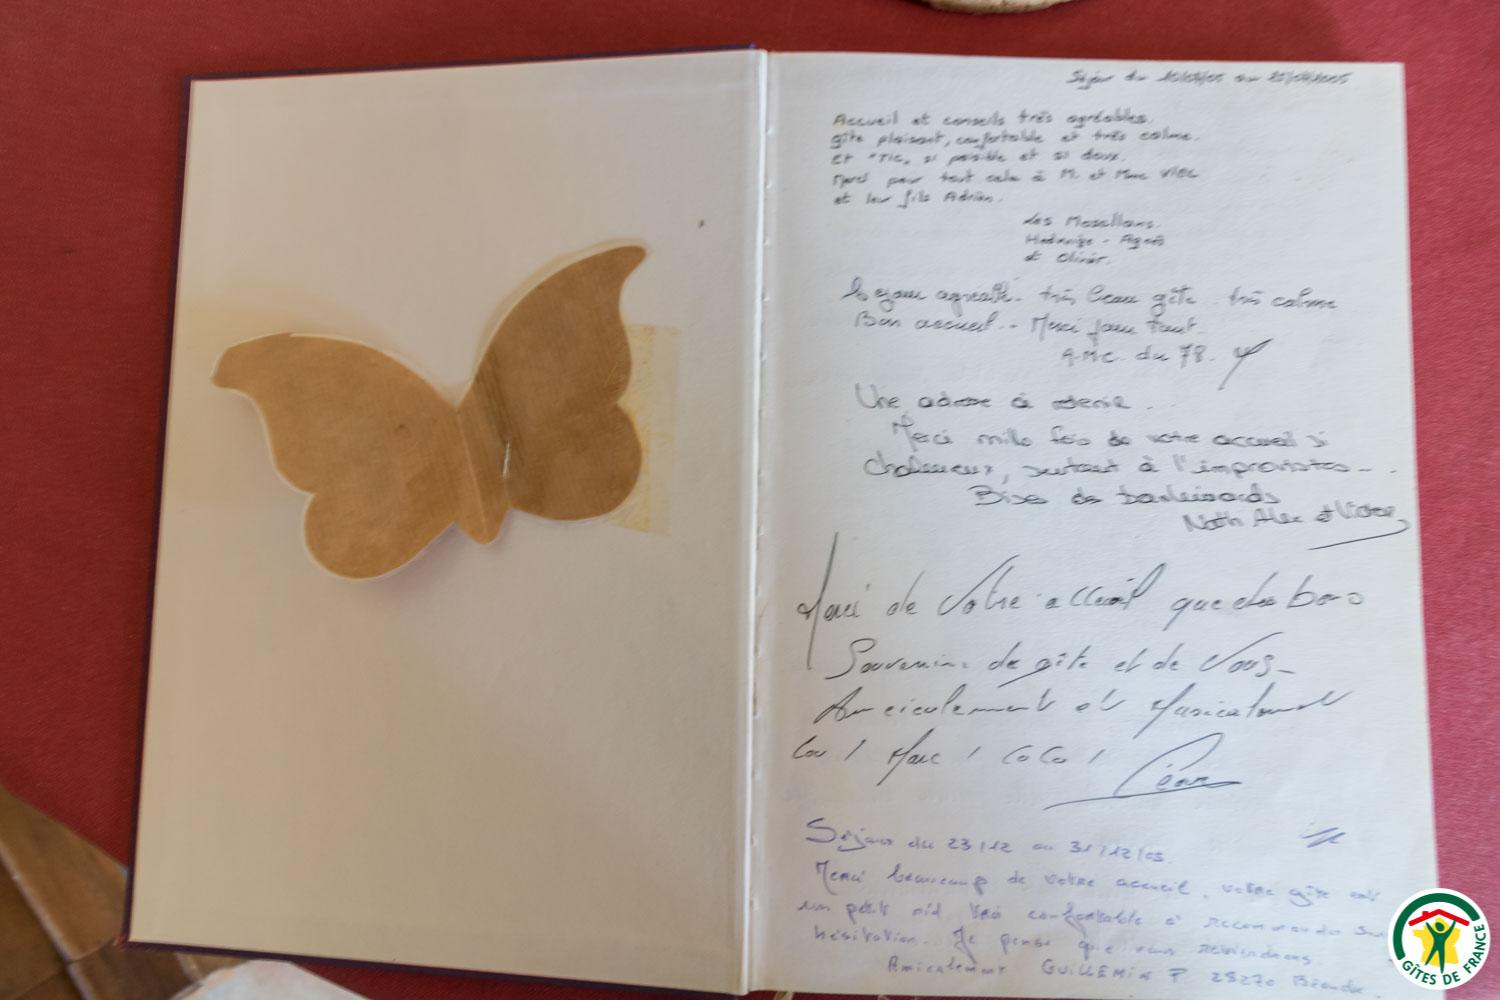 Séjour du au
Accueil et conseils très agréables.
gîte plaisant, confortable et très calme.
Et "Tic, si paisible et si doux.
Merci pour tout cela à M. et Mme VIEL
et leur fils Adrien.
Les Mosellans.
Hedwige - Agnès
et Olivier.
Séjour agréable. très beau gîte très calme
Bon accueil.. Merci pour tout.
A.M.C. du 78.
Une adresse à retenir.
Merci mille fois de votre accueil si
chaleureux, surtout à l'improviste...
Bises des banlieusards
Nath Alex et Victor
Merci de Votre accueil que des bons
Souvenirs de gîte et de Vous_
Amicalement et Musicalement
Lou / Marc / CoCo /
Séjour du 23/12 au 31/12/05
Merci beaucoup de votre accueil, votre gîte est
un petit nid très confortable à recommander sans
hésitation. Je pense que nous reviendrons.
Amicalement GUILLEMIN P 28270
GÎTES DE FRANCE